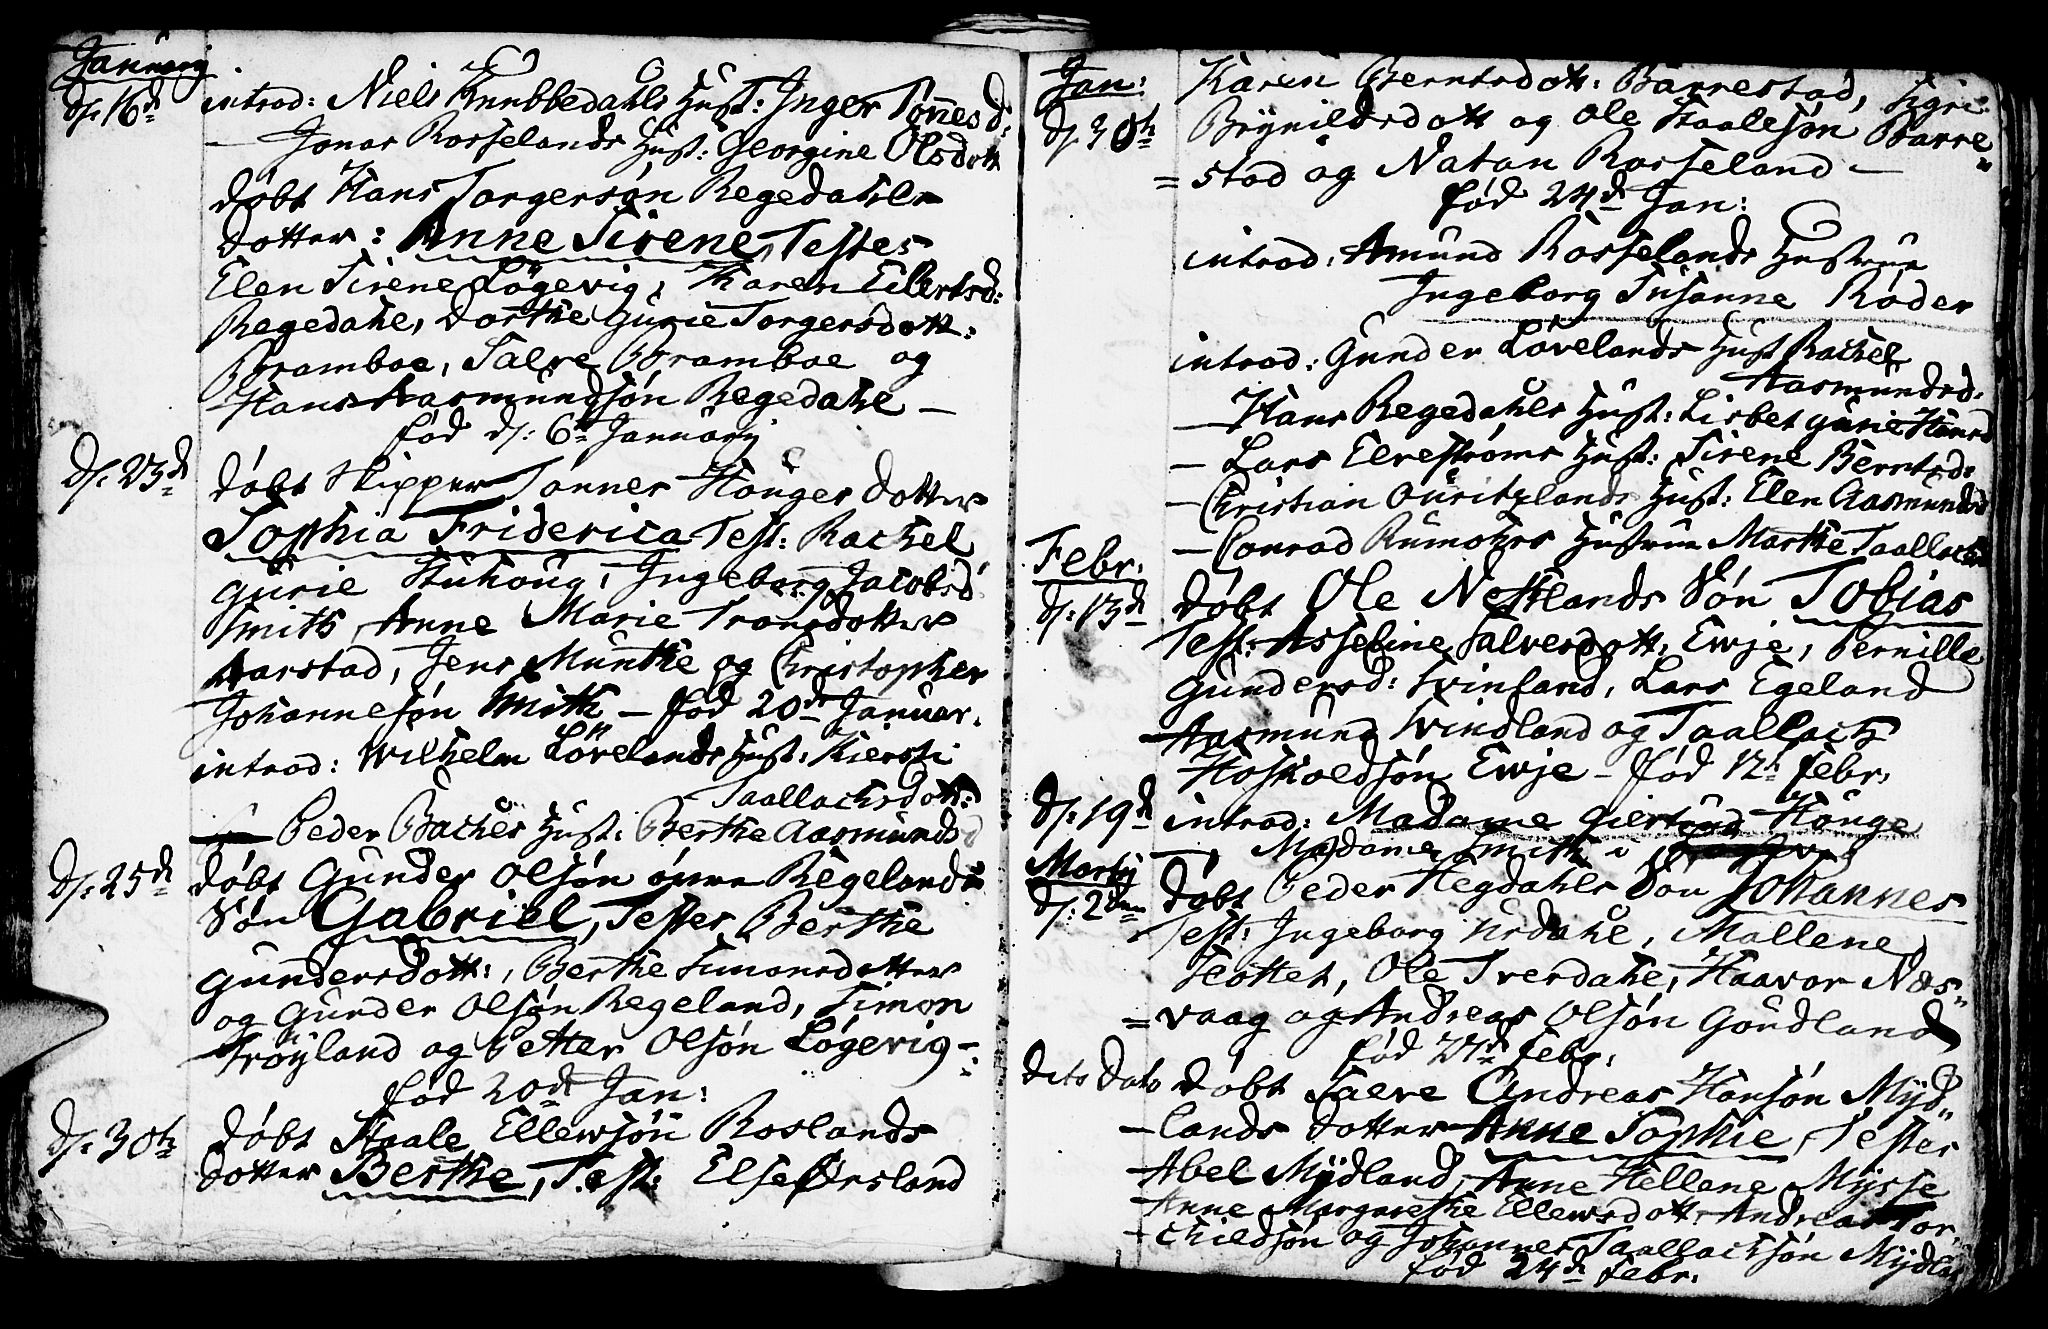 Januarij
d: 16d introd: Niels Knubbedahls Hust: Inger Tønnesd:
— Jonas Rosselands Hust: Georgine Olsdott
døbt Hans Torgersøn Regedahls
dotter: Anne Sirene, Testes
Elen Sirene Løgevig, Karen Eilertsd:
Regedahl, Dorthe Gurie Torgersdott:
Bramboe, Salve Bramboe og
Hans Aasmundsøn Regedahl —
fød d: 6t Januarij
d: 23d døbt Skipper Tønnes Houges dotter
Sophia Friderica Test: Rachel
Gurie Stuhoug, Ingeborg Jacobsd
Smith, Anne Marie Tronsdotter
Aarstad, Jens Munthe og Christopher
Johannesøn Smith — fød 20de Januar.
introd: Wilhelm Løvelands Hust: Kiersti
Taallachsdott:
— Peder Baches Hust: Berthe Aasmundsd
d: 25d døbt Gunder Olsøn øvre Regelands
Søn Gabriel, Testes Berthe
Gundersdott:, Berthe Simonsdotter
og Gunder Olsøn Regeland, Simon
Frøyland og Petter Olsøn Løgevig —
fød 20de Jan:
d: 30te døbt Staale Ellewsøn Roslands
dotter Berthe, Test: Else Ørsland
Jan:
d: 30te Karen Berntsdott: Barrestad, Sigri
Brynildsdott og Ole Staalesøn Barre=
=stad og Natan Rosseland —
fød 24d Jan:
introd: Amund Rosselands Hustrue
Ingeborg Susanne Røder
introd: Gunder Løvelands Hust Rachel
Aasmundsd.
— Hans Regedahls Hust: Lisbet Gurie Hansd
— Lars Elvestrøms Hust: Sirene Berntsd:
— Christian Ouritzlands Hust: Elen Aasmundsd
— Conrad Rumohrs Hustrue Marthe Taallachsd
Febr.
d: 13d døbt Ole Netlands Søn Tobias
Test: Asseline Salvesdott, Ewje, Pernille
Gundersd: Svinland, Lars Egeland
Aasmund Svindland og Taallach
Hoskoldsøn Ewje — fød 12t Febr.
d: 19d introd: Madame Giertrud Houge
— , Madame Smith i
Martij
d: 2den døbt Peder Hegdahls Søn Johannes
Test: Ingeborg Urdahl, Mallene
Flottet, Ole Tverdahl, Haavor Næs=
=vaag og Andreas Olsøn Goudland
fød 21d Febr.
Dito Dato døbt Salve Andreas Hansøn Myd=
=lands dotter Anne Sophie, Testes
Abel Mydland, Anne Hellene Mysse
Anne Margarethe Ellewsdott, Andreas Tor=
=childsøn og Johannes Taallachsøn Mydla
fød 24d Febr.